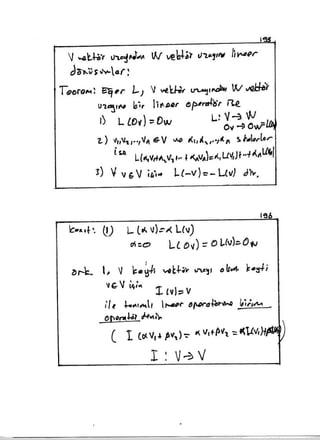 195
V vektör uzayından W vektör uzayına lineer
dönüşümler:
Teorem: Eğer L, V vektör uzayından W vektör
uzayına bir lineer operatör ise
1) L(0v) = 0w L: V → W
0v → 0w = L(0v)
2) V₁, V₂, ..., Vₙ ∈ V ve α₁, α₂, ..., αₙ skalerler
ise L(α₁V₁ + α₂V₂ + ... + αₙVₙ) = α₁L(V₁) + ... + αₙL(Vₙ)
3) V v ∈ V için L(-v) = -L(v) dir.
196
kanıt: (1) L(αv) = α L(v)
α = 0 L(0v) = 0 L(v) = 0w
örk. 1, V keyfi vektör uzayı olsun keyfi
v ∈ V için I(v) = v
ile tanımlı lineer operatörüne birim
operatör denir
( I(αV₁ + βV₂) = αV₁ + βV₂ = αI(V₁) + βI(V₂)
I : V → V